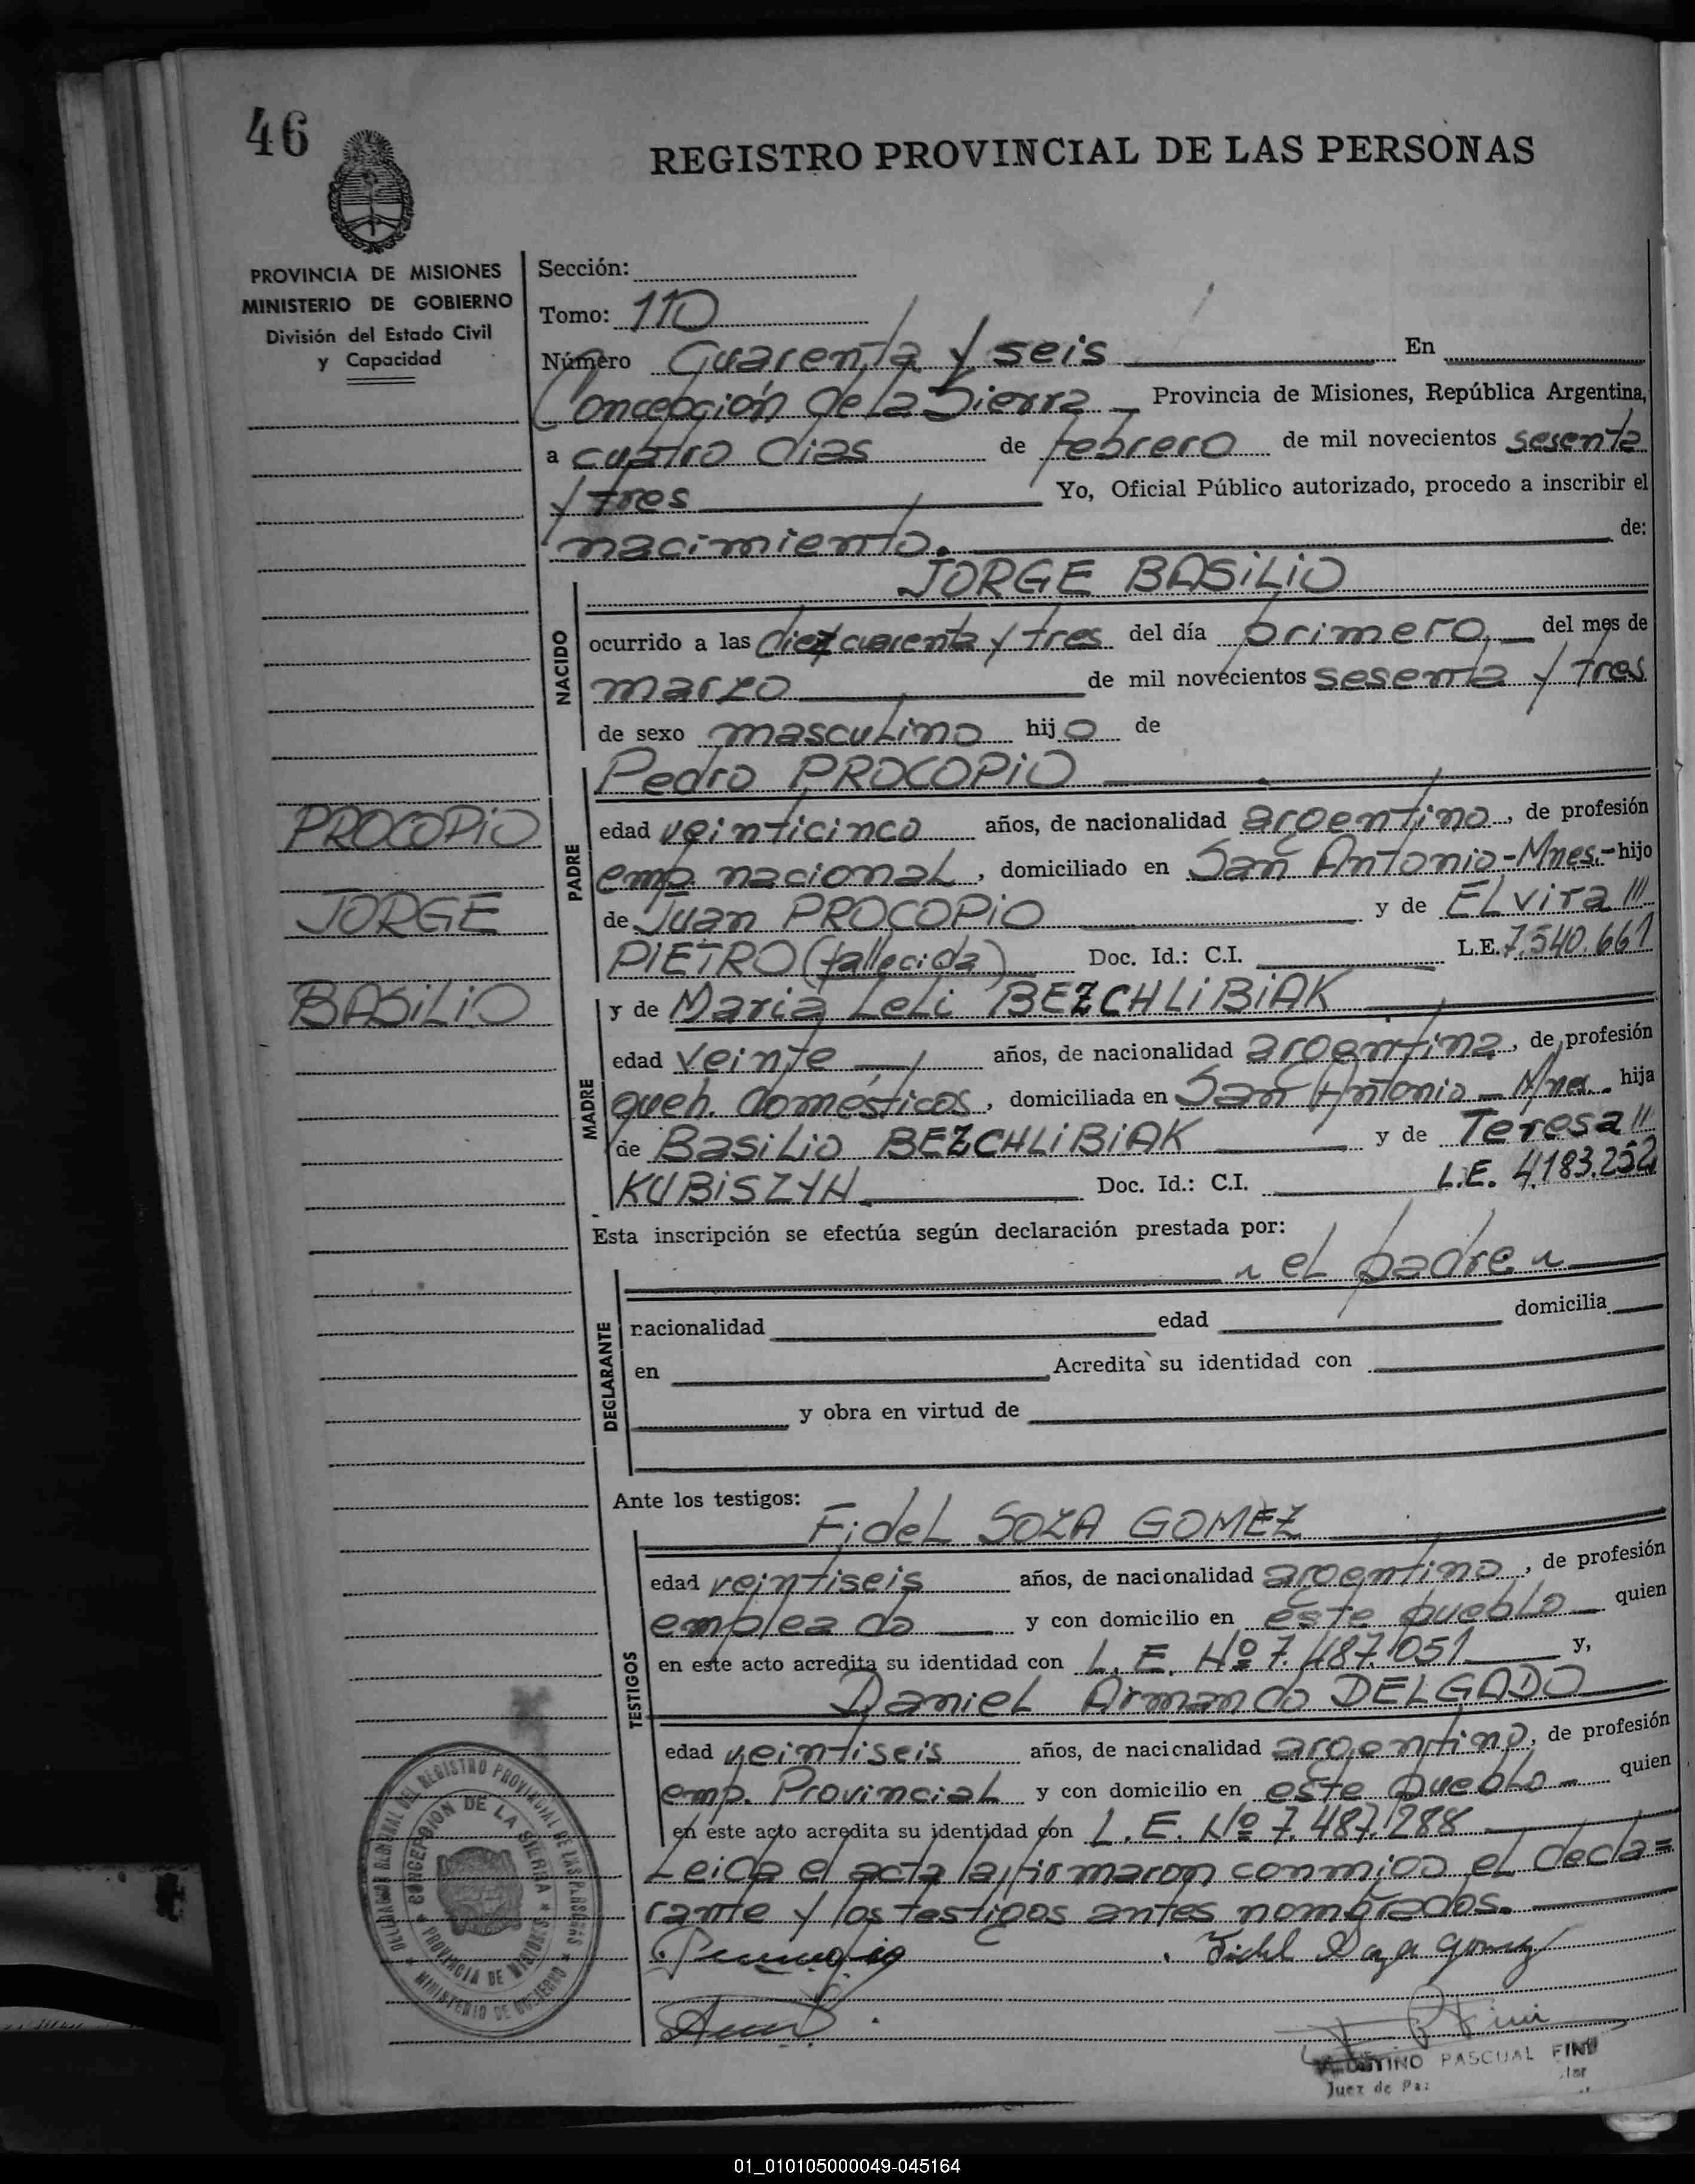 46
REGISTRO PROVINCIAL DE LAS PERSONAS
PROVINCIA DE MISIONES
MINISTERIO DE GOBIERNO
División del Estado Civil
y Capacidad
Sección:
Tomo: 110
Número Cuarenta y seis En
Concepción de la Sierra Provincia de Misiones, República Argentina,
a cuatro dias de febrero de mil novecientos sesenta
y tres Yo, Oficial Público autorizado, procedo a inscribir el
nacimiento. de:
JORGE BASiLiO
NACIDO
ocurrido a las diez cuarenta y tres del día primero del mes de
marzo de mil novecientos sesenta y tres
de sexo masculino hijo de
PADRE
Pedro PROCOPiO
edad veinticinco años, de nacionalidad argentino, de profesión
emp. nacional, domiciliado en San Antonio-Mnes.- hijo
de Juan PROCOPiO y de Elvira
PiETRO (fallecida) Doc. Id.: C.I. L.E. 7.540.661
PROCOPiO
JORGE
BASiLiO
MADRE
y de Maria Leli BEZCHLiBiAK
edad veinte años, de nacionalidad argentina, de profesión
queh. domésticos, domiciliada en San Antonio - Mnes. hija
de Basilio BEZCHLiBiAK y de Teresa
KUBiSZYN Doc. Id.: C.I. L.E. 4.183.252
Esta inscripción se efectúa según declaración prestada por:
el padre
DECLARANTE
nacionalidad edad domicilia
en Acredita su identidad con
y obra en virtud de
Ante los testigos:
TESTIGOS
Fidel SOZA GOMEZ
edad veintiseis años, de nacionalidad argentino, de profesión
empleado y con domicilio en este pueblo quien
en este acto acredita su identidad con L. E. Nº 7.487.051 y,
Daniel Armando DELGADO
edad veintiseis años, de nacionalidad argentino, de profesión
emp. Provincial y con domicilio en este pueblo - quien
en este acto acredita su identidad con L. E. Nº 7.487.288
Leida el acta la firmaron conmigo el decla=
rante y los testigos antes nombrados.
Fidel Soza Gomez
DELEGACION REGIONAL DEL REGISTRO PROVINCIAL DE LAS PERSONAS
* CONCEPCION DE LA SIERRA *
PROVINCIA DE MISIONES
* MINISTERIO DE GOBIERNO *
PASCUAL FINI
Juez de Paz
01_010105000049-045164